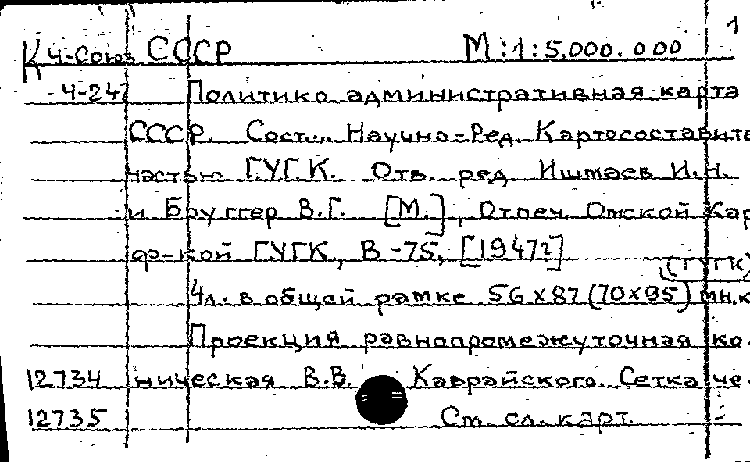 1
К 4-Союз СССР М:1:5.000.000
4-247 Политико административная карта
СССР. Сост. Научно-Ред. Картосоставите
частью ГУГК. Отв. ред. Ишмаев И.Н.
и Бруггер В.Г. [М.], Отпеч. Омской Кар
ф-кой ГУГК, В-75, [1947г]
(ГУГК)
4л. в общей рамке 56х87 (70х95) мн.к
Проекция равнопромежуточная ко-
12734 ническая В.В. Каврайского. Сетка че-
12735 См. сл. карт.